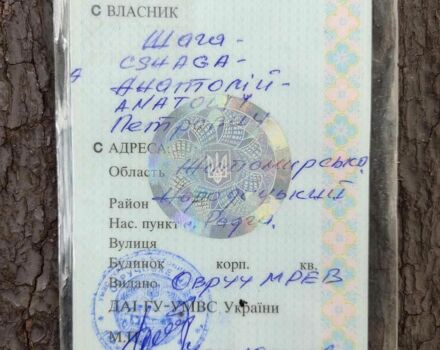 С ВЛАСНИК
Шага -
CSHAGA -
Анатолій -
ANATOLIY
Петрович
С АДРЕСА
Область Житомирська
Район
Нас. пункт
Вулиця
Будинок корп. кв.
Видано Овруч МРЕВ
ДАІ-ГУ-УМВС України
М.П.